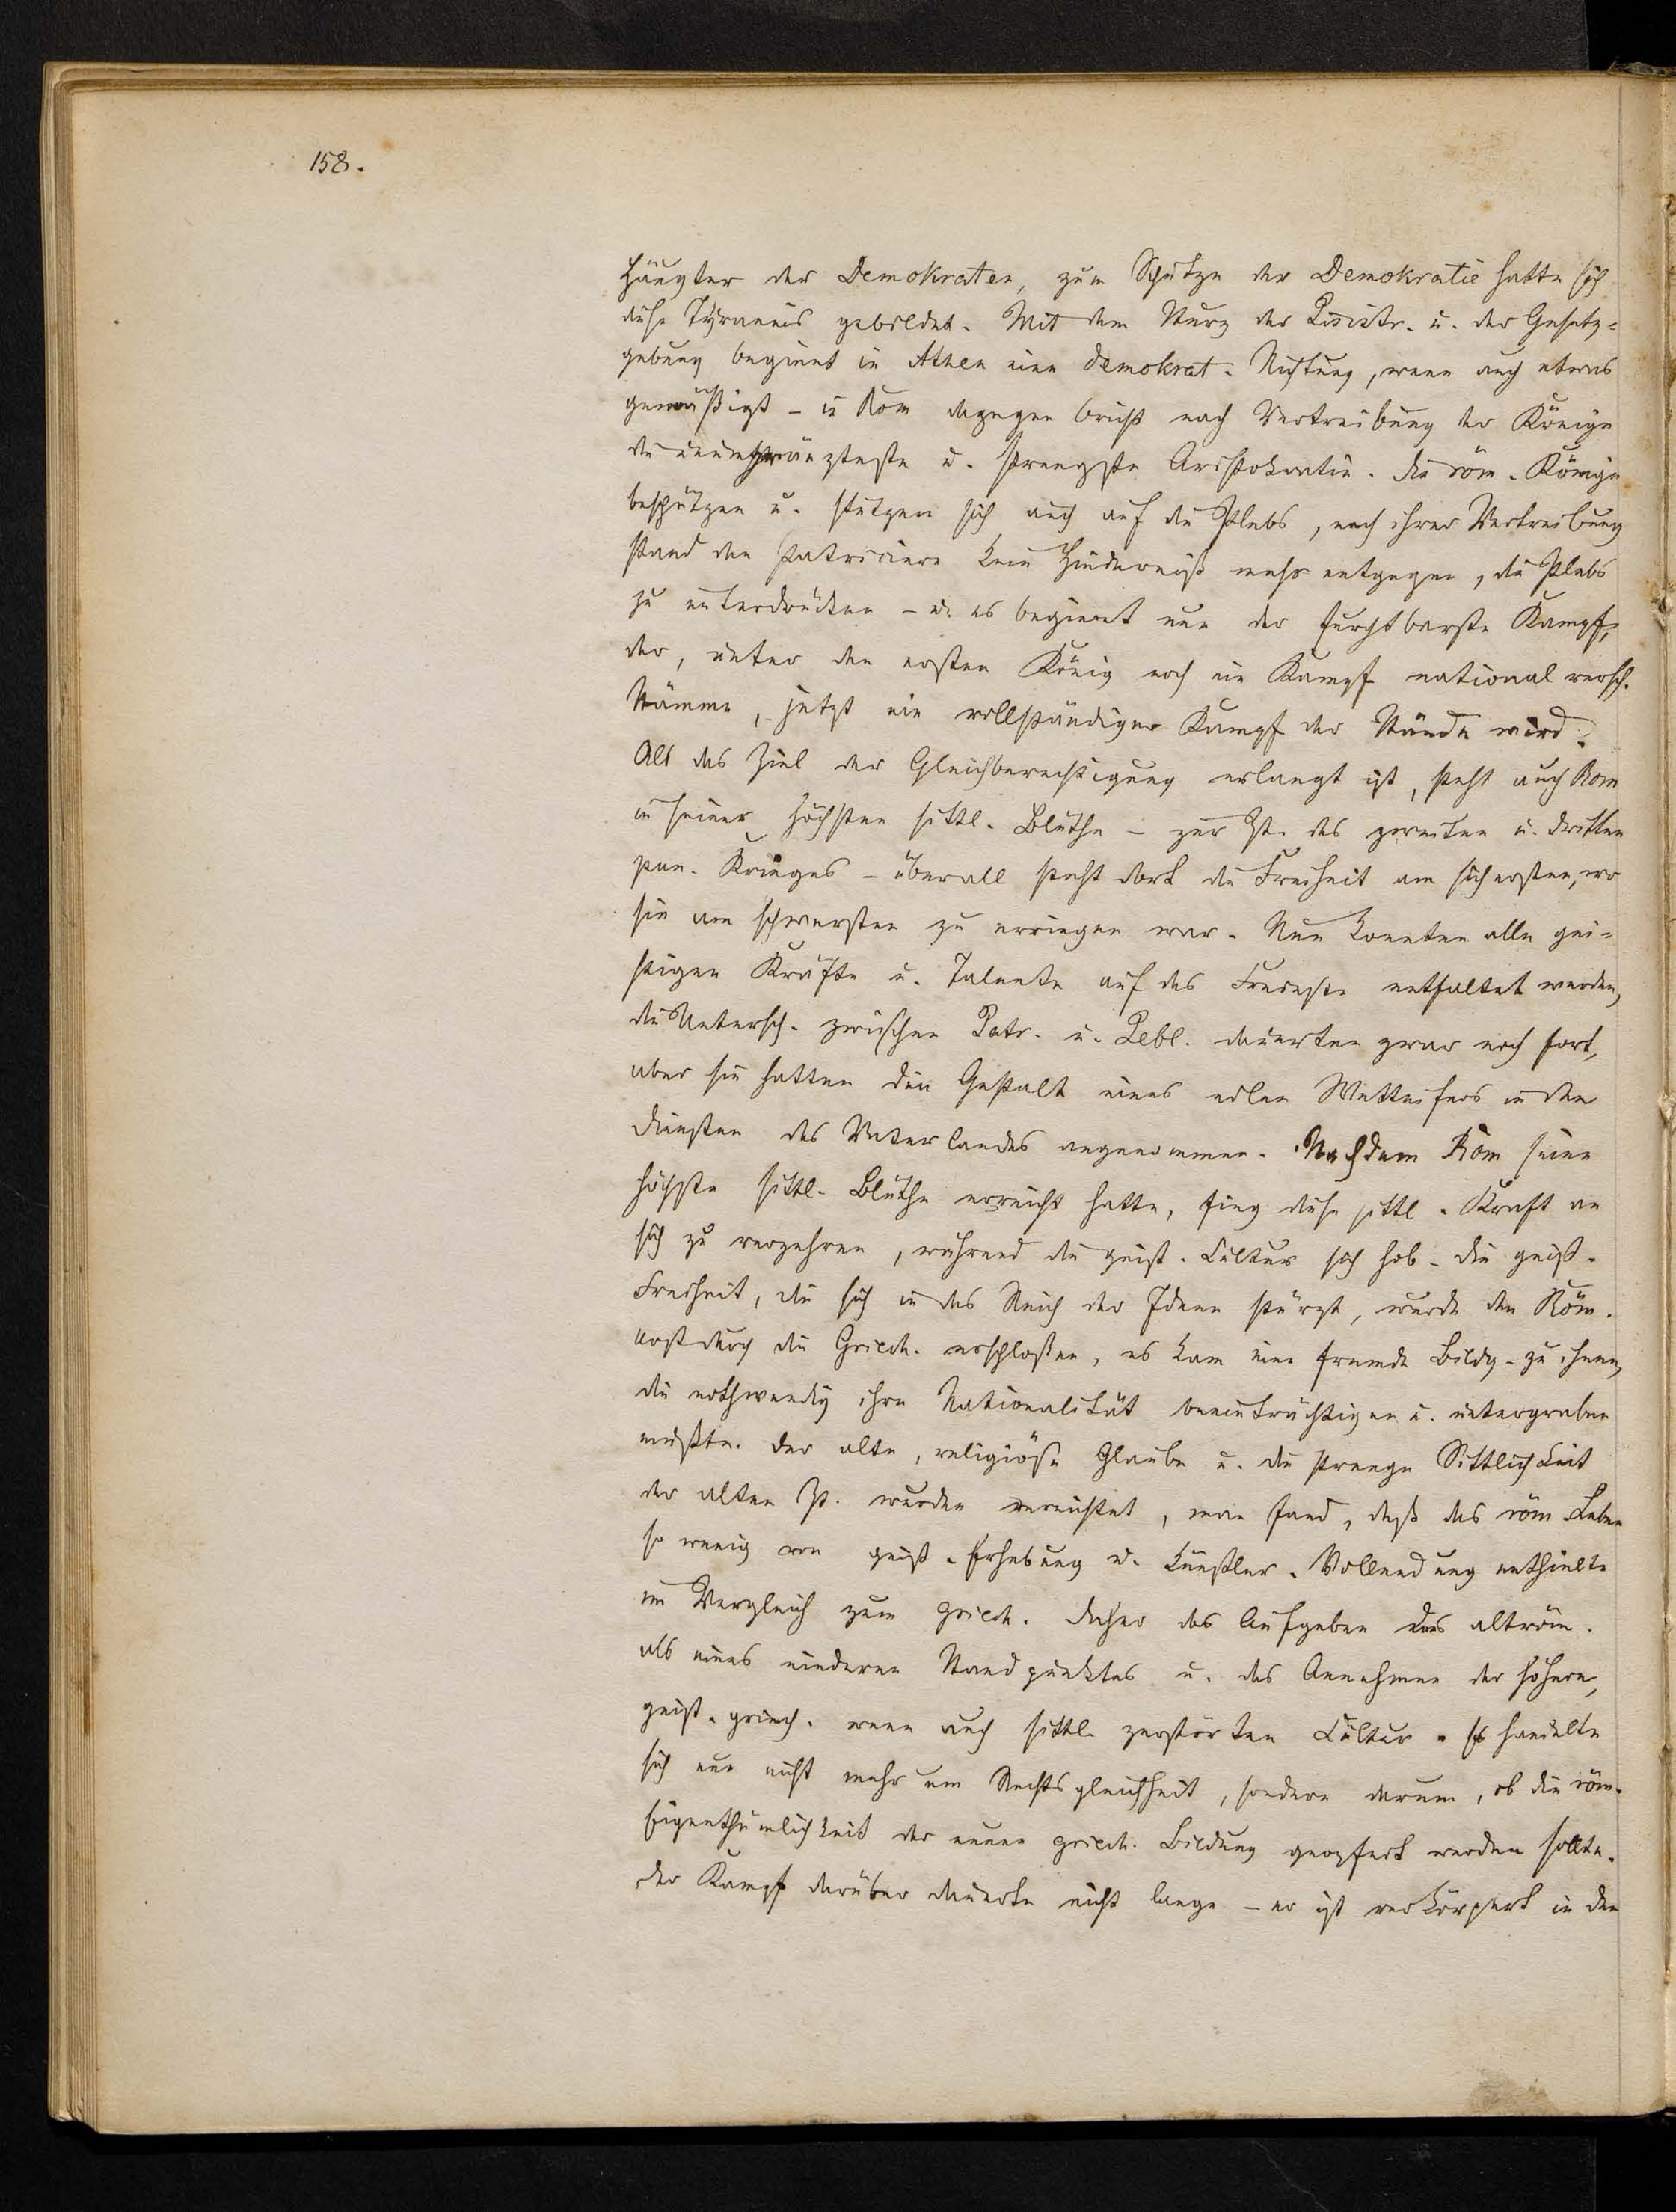 158.
Häupter der Demokraten, zum Schutze der Demokratie hatte sich
diese Tyrannis gebildet. Mit dem Sturz der Pisistr. u. der Gesetz=
gebung beginnt in Athen eine demokrat. Richtung, wenn auch etwas
gemäßigt - in Rom dagegen bricht nach Vertreibung der Könige
die unumschränkteste u. strengste Aristokratie. Die röm. Könige
beschützen u. stützen sich auch auf die Plebs, nach ihrer Vertreibung
stand den Patriciern kein Hinderniß mehr entgegen, die Plebs
zu unterdrücken - u. es beginnt nun der furchtbarste Kampf,
der, unter den ersten König noch ein Kampf national versch.
Stämme, jetzt ein vollständiger Kampf der Stände wird.
Als das Ziel der Gleichberechtigung erlangt ist, steht auch Rom
in seiner höchsten sittl. Blüthe - zur Zt. des zweiten u. dritten
pun. Krieges - überall steht dort die Freiheit am sichersten, wo
sie am schwersten zu erringen war. Nun konnten alle gei=
stigen Kräfte u. Talente auf das Freieste entfaltet werden,
die Untersch. zwischen Patr. u. Plebl. dauerten zwar noch fort,
aber sie hatten die Gestalt eines edlen Wetteifers in den
Diensten des Vaterlandes angenommen. Nachdem Rom seine
höchste sittl. Blüthe erreicht hatte, fing diese sittl. Kraft an
sich zu verzehren, während die geist. Cultur sich hob - die geist.
Freiheit, die sich in das Reich der Ideen stürzt, wurde den Röm.
erst durch die Griech. erschloßen, es kam eine fremde Bildg. zu ihnen,
die nothwendig ihre Nationalität beeinträchtigen u. untergraben
mußte. Der alte, religiöse Glaube u. die strenge Sittlichkeit
der alten Zt. wurden vernichtet, man fand, daß das röm Leben
so wenig von geist. Erhebung u. künstler. Vollendung enthielte
im Vergleich zum griech. Daher das Aufgeben des altröm.
als eines niederen Standpunktes u. das Annehmen der höhern,
geist. griech. wenn auch sittl. zerstörten Cultur. Es handelte
sich nun nicht mehr um Rechtsgleichheit, sondern darum, ob die röm.
Eigenthümlichkeit der neuen griech. Bildung geopfert werden sollte.
Der Kampf darüber dauerte nicht lange - er ist verkörpert in den